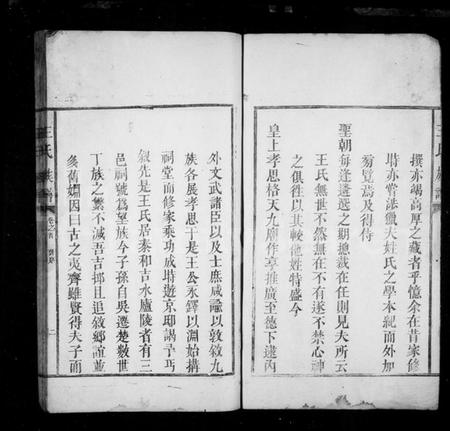 撰亦竭高厚之藏者乎憶余在昔家修
時亦嘗涉獵夫姓氏之學本紀而外加
㫄覽焉及得侍
聖朝每逢遴選之期摠裁在任則見夫所云
王氏無世不然無在不有遂不禁心神
之俱徃以其較他姓特盛今
皇上孝思格天九廟作享推廣至德下逮內
外文武諸臣以及士庶咸諭以敦敘九
族各展孝思于是王公永鐸以淵始搆
祠堂而修家乘功成時遊京邸謁予丐
敘先是王氏居泰和吉水廬陵者有三
邑祠號爲望族今子孫自吳遷楚數世
丁族之繁不減吾吉邦且追敘鄉誼並
多舊姻因曰古之夷齊雖賢得夫子而
王氏族譜
卷之首